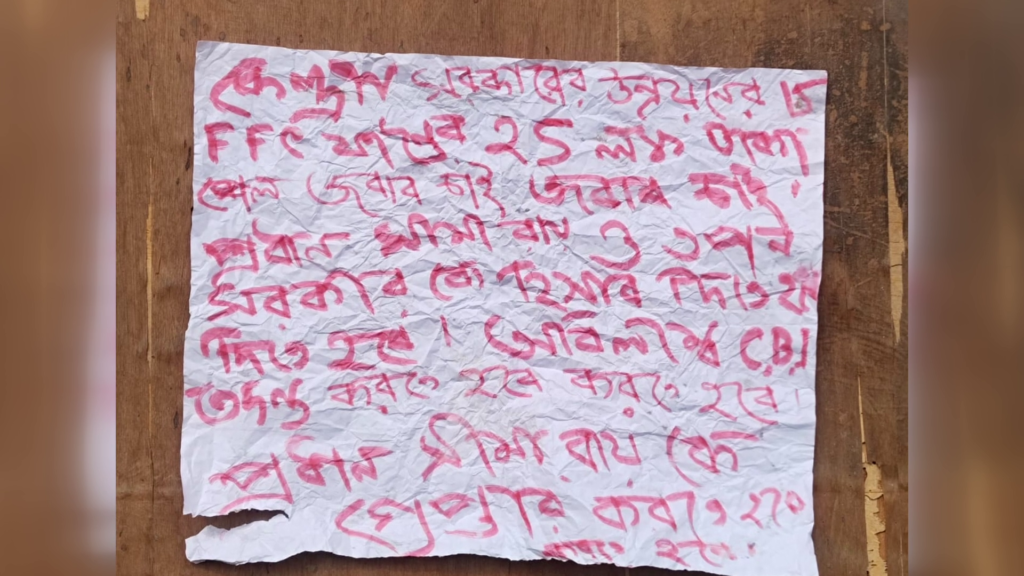 কেন্দ্রীয় সরকারের উন্নয়নের 15
FFC ফান্ডের ২5 লক্ষ টাকা
গেল জবাব চাই জবাব চাই
প্রধান সীমা রায় ও
সরকার কে হিসাব দিতে
দিতে হবে। অবিলম্বে CBI
তদন্ত করতে হবে করতে হবে।
প্রধান সীমা রায় কে
গ্রেপ্তার করতে হবে
করতে হবে।